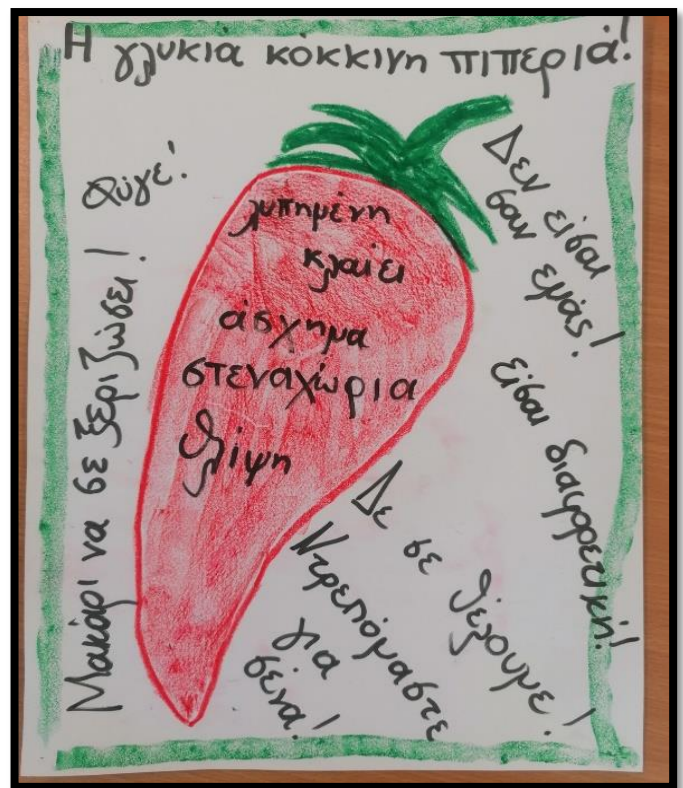 Η γλυκιά κόκκινη πιπεριά!
Φύγε!
Μακάρι να σε ξεριζώσει!
λυπημένη
κλαίει
άσχημα
στεναχώρια
θλίψη
Δεν είσαι
σαν εμάς!
είσαι διαφορετική!
Δε σε θέλουμε!
Ντρεπόμαστε
για
σένα!